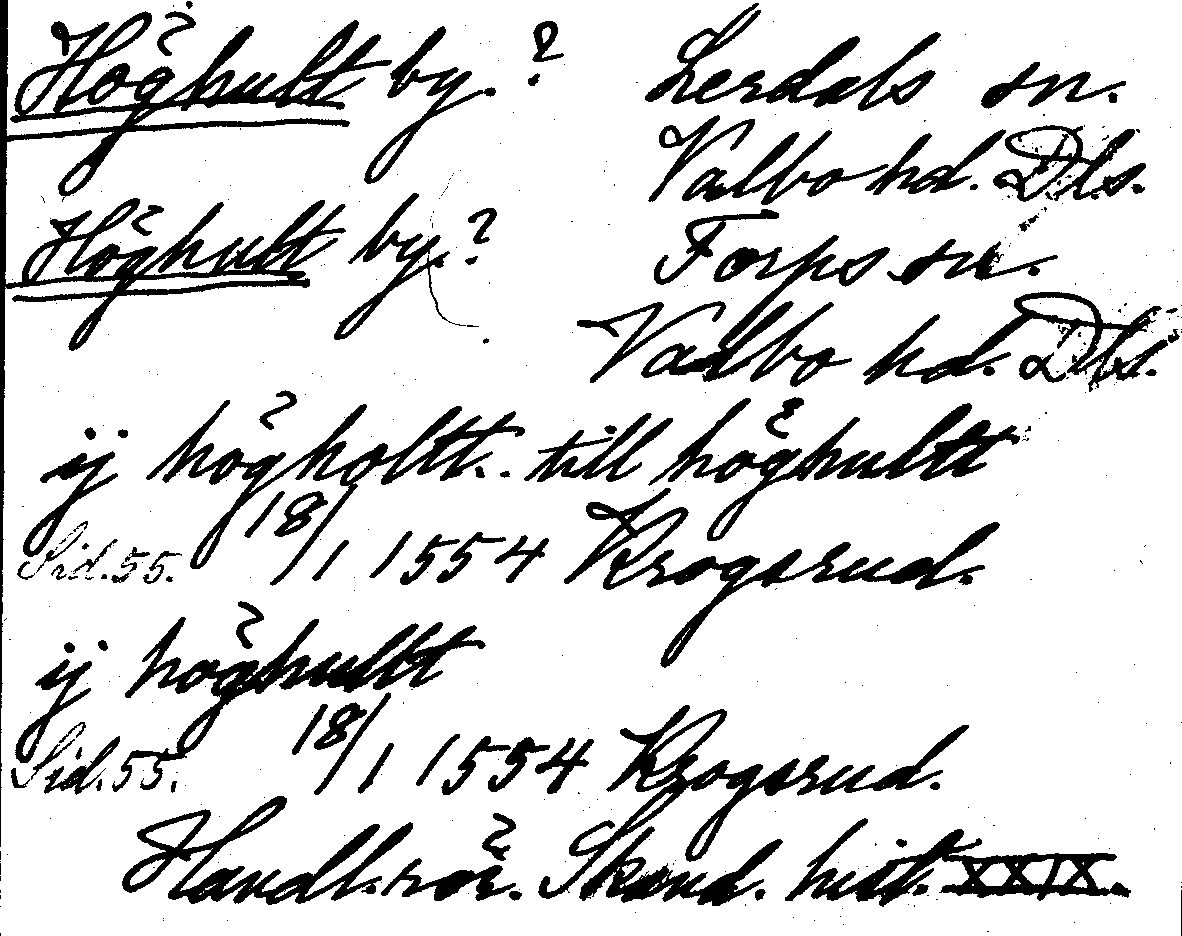 Höghult by.? Lerdals sn.
Valbo hd. Dls.
Höghult by.? Torps sn.
Valbo hd. Dls.
ij högholtt.. till höghultt
Sid. 55. 18/1 1554 Krogsrud.
ij höghultt
Sid. 55. 18/1 1554 Krogsrud.
Handl. rör. Skand. hist. XXIX.